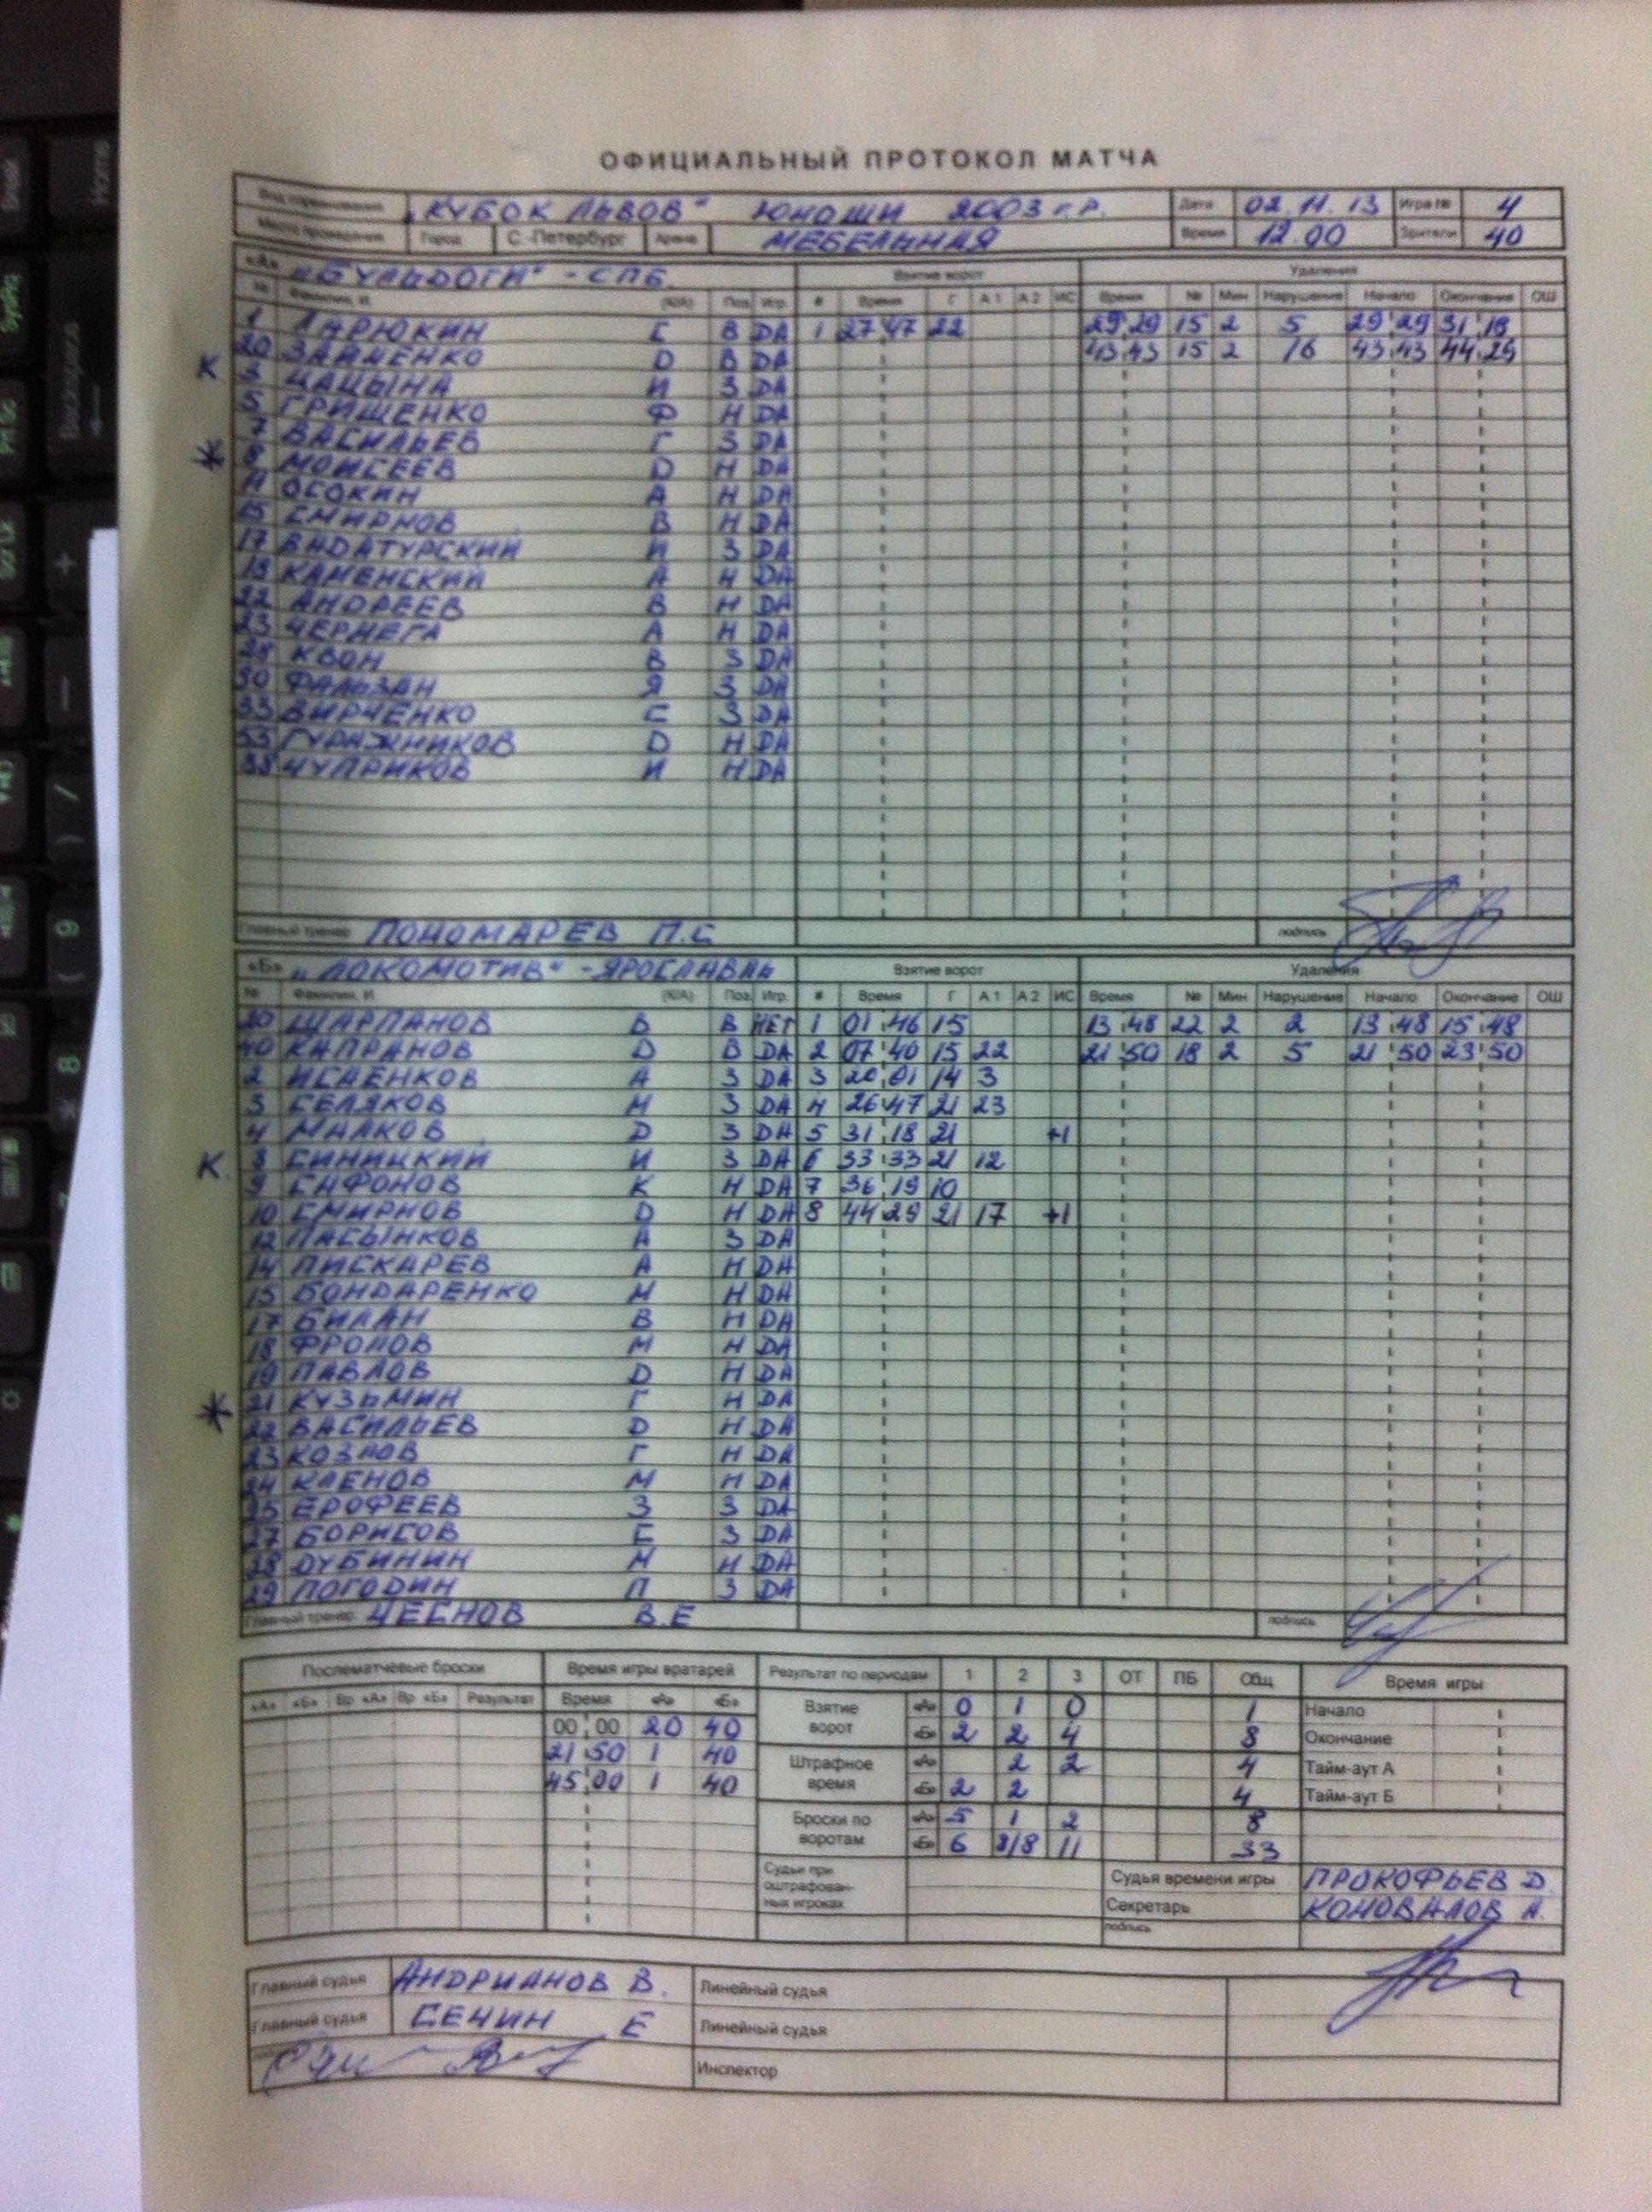 ОФИЦИАЛЬНЫЙ ПРОТОКОЛ МАТЧА
Вид соревнования "КУБОК ЛЬВОВ" ЮНОШИ 2003 г.р. Дата 02.11.13 Игра № 4
Место проведения Город С.-Петербург Арена МЕБЕЛЬНАЯ Время 12.00 Зрители 40
«А» "БУЛЬДОГИ" - СПБ. Взятие ворот Удаления
№ Фамилия, И. (К/А) Поз. Игр. # Время Г А1 А2 ИС Время № Мин Нарушение Начало Окончание ОШ
1 ЛАРЮКИН С В DA 1 27:47 22 29:29 15 2 5 29:29 31:18
К 20 ЗАЙЧЕНКО D В DA 43:43 15 2 16 43:43 44:29
3 ЦАЦЫНА И З DA
5 ГРИЩЕНКО Ф Н DA
7 ВАСИЛЬЕВ Г З DA
* 8 МОИСЕЕВ D Н DA
11 ОСОКИН А Н DA
15 СМИРНОВ В Н DA
17 ВАДАТУРСКИЙ И З DA
КАМЕНСКИЙ А Н DA
22 АНДРЕЕВ В Н DA
23 ЧЕРНЕГА А Н DA
28 КВОН В З DA
30 ФАЛЬЗАН Я З DA
33 ВИРЧЕНКО С З DA
53 ГУРАЖНИКОВ D Н DA
ЧУПРИКОВ И Н DA
Главный тренер ПОНОМАРЕВ П.С подпись
«Б» "ЛОКОМОТИВ" - ЯРОСЛАВЛЬ Взятие ворот Удаления
№ Фамилия, И. (К/А) Поз. Игр. # Время Г А1 А2 ИС Время № Мин Нарушение Начало Окончание ОШ
20 ШАРПАНОВ В В НЕТ 1 01:46 15 13:48 22 2 2 13:48 15:48
40 КАПРАНОВ D В DA 2 07:40 15 22 21:50 18 2 5 21:50 23:50
2 ИСАЕНКОВ А З DA 3 20:01 14 3
3 СЕЛЯКОВ М З DA 4 26:47 21 23
4 МАЛКОВ D З DA 5 31:18 21 +1
К. 8 СИНИЦКИЙ И З DA 6 33:33 21 12
9 САФОНОВ К Н DA 7 36:19 10
10 СМИРНОВ D Н DA 8 44:29 21 17 +1
12 ПАСЫНКОВ А З DA
14 ПИСКАРЕВ А Н DA
15 БОНДАРЕНКО М Н DA
17 БИЛАН В Н DA
18 ФРОЛОВ М Н DA
19 ПАВЛОВ D Н DA
* 21 КУЗЬМИН Г Н DA
22 ВАСИЛЬЕВ D Н DA
23 КОЗЛОВ Г Н DA
24 КЛЕНОВ М Н DA
25 ЕРОФЕЕВ З З DA
27 БОРИСОВ Е З DA
28 ДУБИНИН М Н DA
29 ПОГОДИН П З DA
Главный тренер ЧЕСНОВ В.Е подпись
Послематчевые броски Время игры вратарей Результат по периодам 1 2 3 ОТ ПБ Общ Время игры
«А» «Б» Вр «А» Вр «Б» Результат Время «А» «Б» Взятие ворот «А» 0 1 0 1 Начало
00:00 20 40 «Б» 2 2 4 8 Окончание
21:50 1 40 Штрафное время «А» 2 2 4 Тайм-аут А
45:00 1 40 «Б» 2 2 4 Тайм-аут Б
Броски по воротам «А» 5 1 2 8
«Б» 6 8/8 11 33
Судьи при оштрафованных игроках Судья времени игры ПРОКОФЬЕВ D.
Секретарь КОНОВАЛОВ А.
подпись
Главный судья АНДРИАНОВ В. Линейный судья
Главный судья СЕЧИН Е Линейный судья
Инспектор